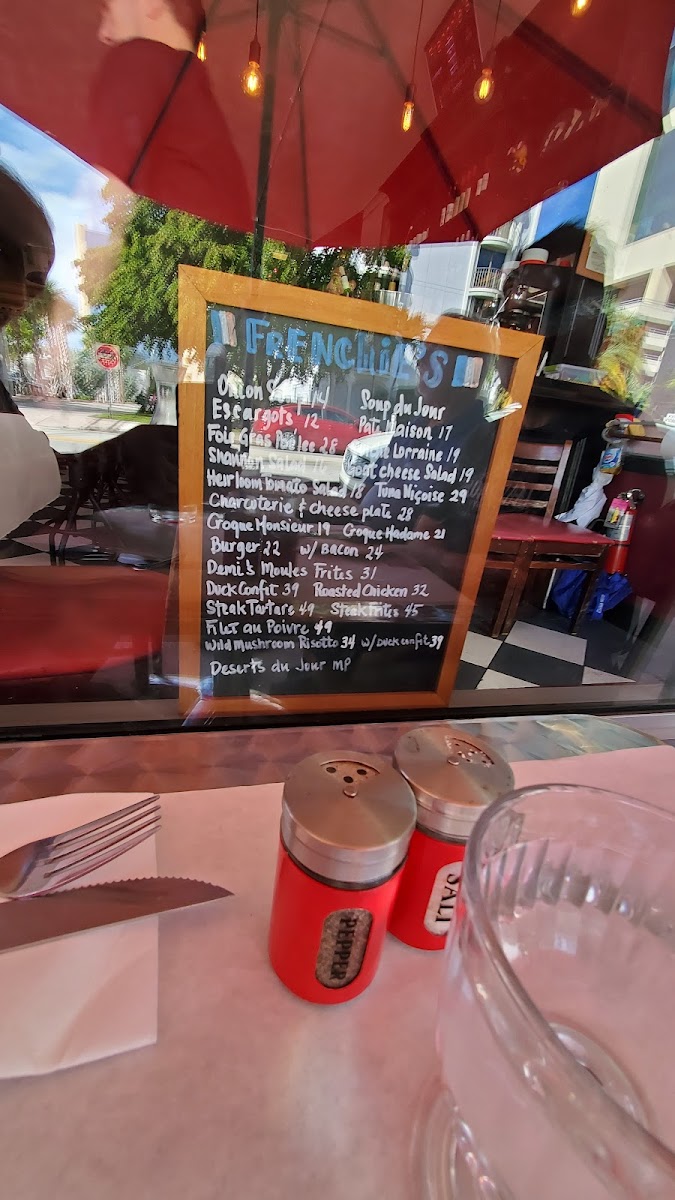 FRENCHIE'S
Onion Soup 14 Soup du Jour
Escargots 12 Pate Maison 17
Foie Gras Poelee 28 Lorraine 19
Shannon Salad Goat cheese Salad 19
Heirloom Tomato Salad 18 Tuna Niçoise 29
Charcuterie & cheese plate 28
Croque Monsieur 19 Croque Madame 21
Burger 22 w/ Bacon 24
Demi's Moules Frites 31
Duck Confit 39 Roasted Chicken 32
Steak Tartare 49 Steak Frites 45
Filet au Poivre 49
Wild Mushroom Risotto 34 w/ Duck confit 39
Deserts du Jour MP
PEPPER
SALT